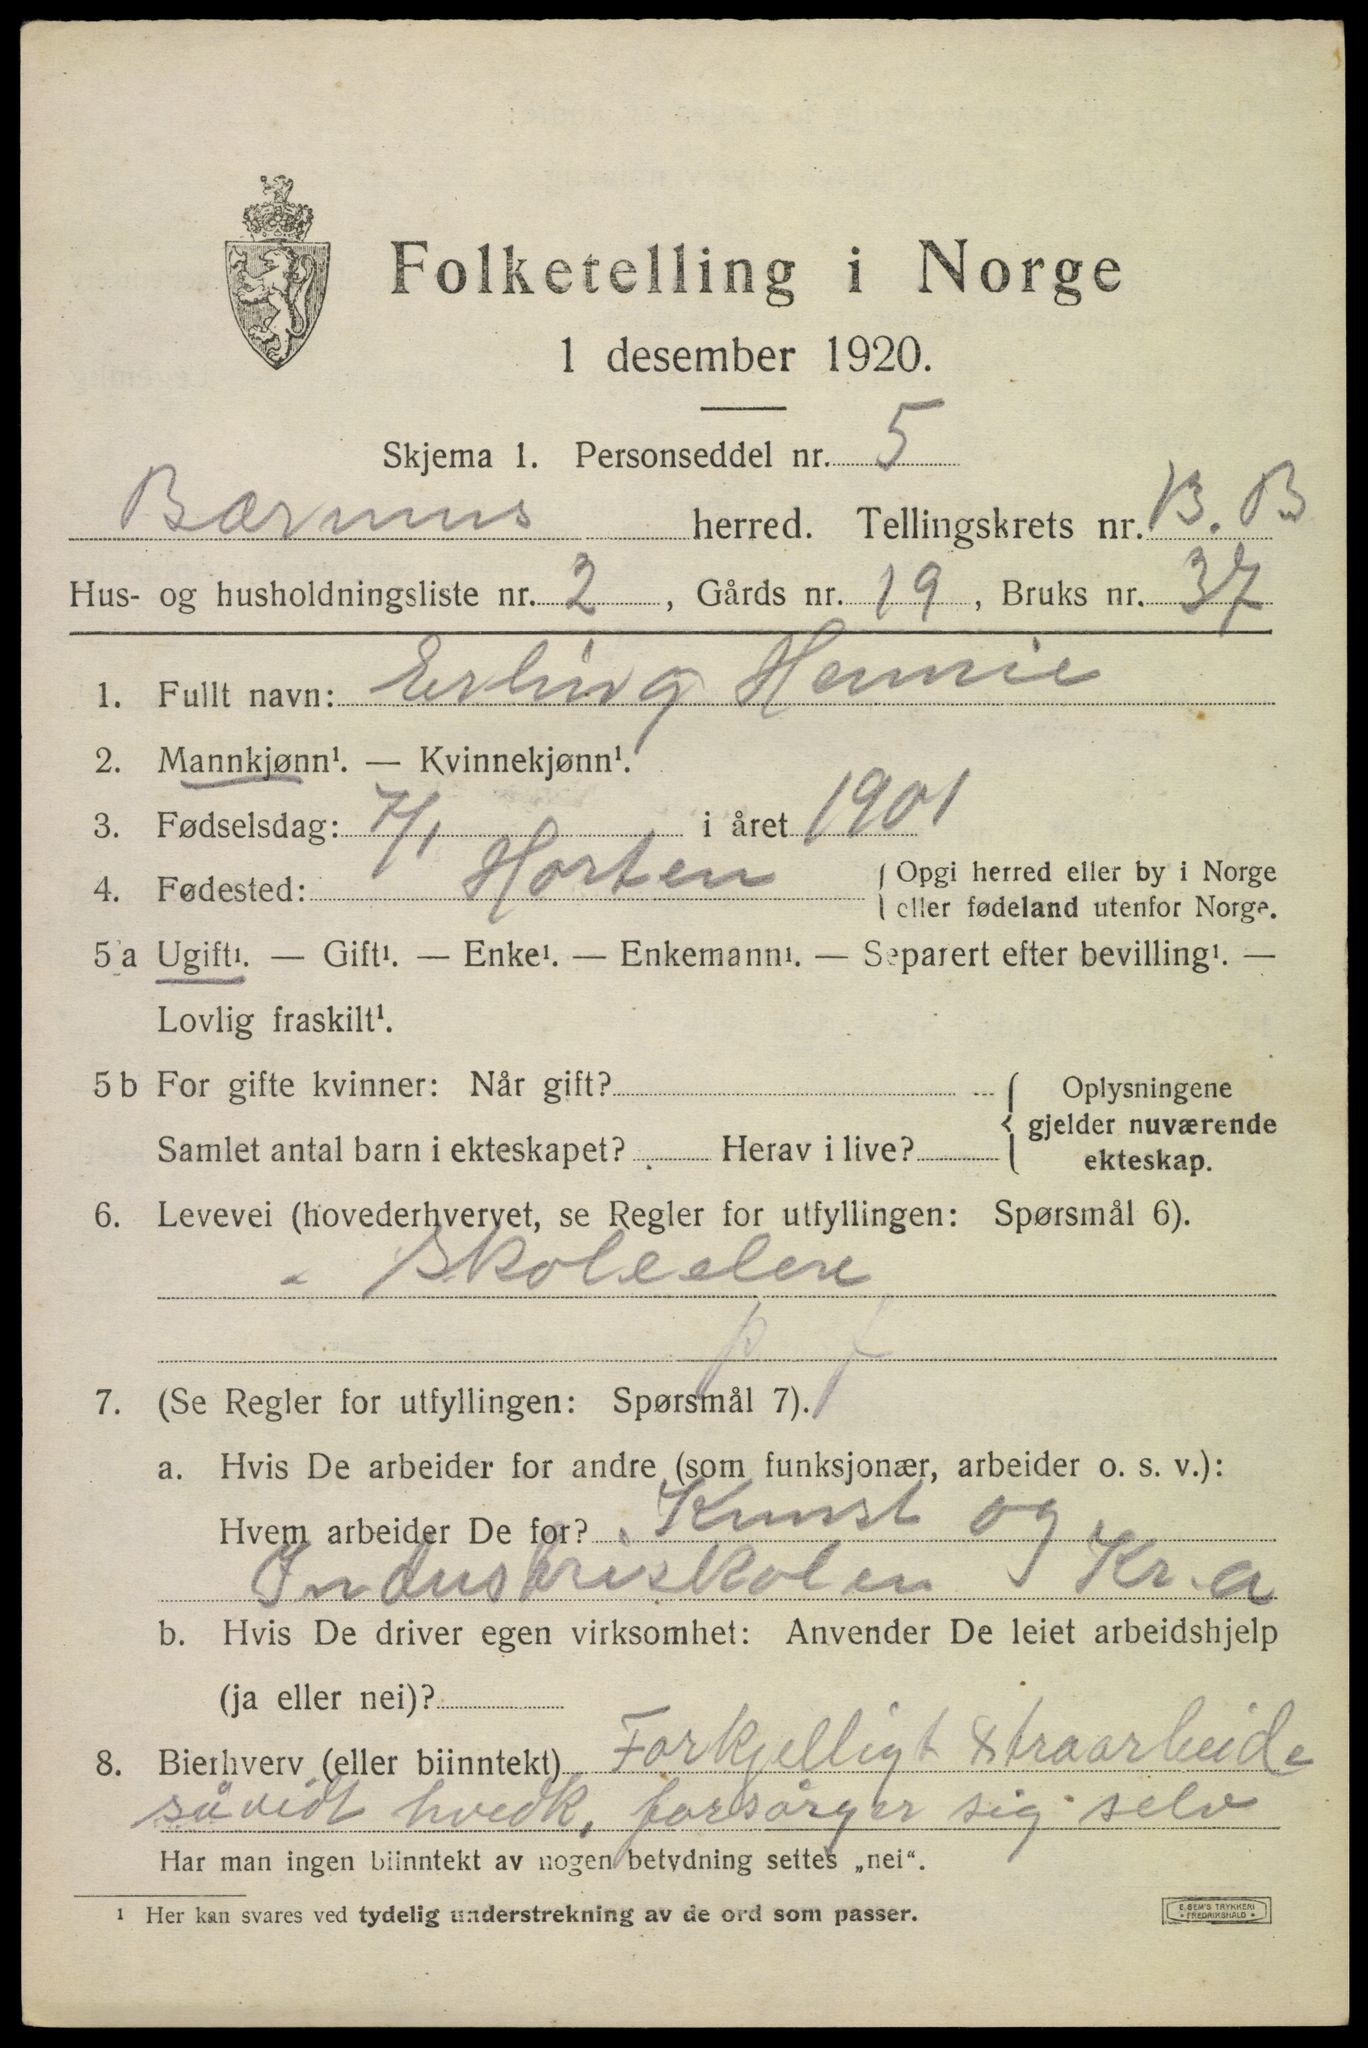 Folketelling i Norge
1 desember 1920.
Skjema 1. Personseddel nr. 5
Bærums herred. Tellingskrets nr. B. B
Hus- og husholdningsliste nr. 2, Gårds nr. 19, Bruks nr. 37
1. Fullt navn: Erling Hennie
2. Mannkjønn¹. — Kvinnekjønn¹.
3. Fødselsdag: 7/1 i året 1901
4. Fødested: Horten { Opgi herred eller by i Norge
eller fødeland utenfor Norge.
5 a Ugift¹. — Gift¹. — Enke¹. — Enkemann¹. — Separert efter bevilling¹. —
Lovlig fraskilt¹.
5 b For gifte kvinner: Når gift? { Oplysningene
gjelder nuværende
Samlet antal barn i ekteskapet? Herav i live?
ekteskap.
6. Levevei (hovederhvervet, se Regler for utfyllingen: Spørsmål 6).
Skoleelev
p f
7. (Se Regler for utfyllingen: Spørsmål 7).
a. Hvis De arbeider for andre (som funksjonær, arbeider o. s. v.):
Hvem arbeider De for? Kunst og
Industriskolen Kr.a
b. Hvis De driver egen virksomhet: Anvender De leiet arbeidshjelp
(ja eller nei)?
8. Bierhverv (eller biinntekt) Forkjelligt Xtraarbeide
såvidt hvedk, forsørger sig selv
Har man ingen biinntekt av nogen betydning settes „nei“.
¹ Her kan svares ved tydelig understrekning av de ord som passer.
E. SEM'S TRYKKERI
FREDRIKSHALD